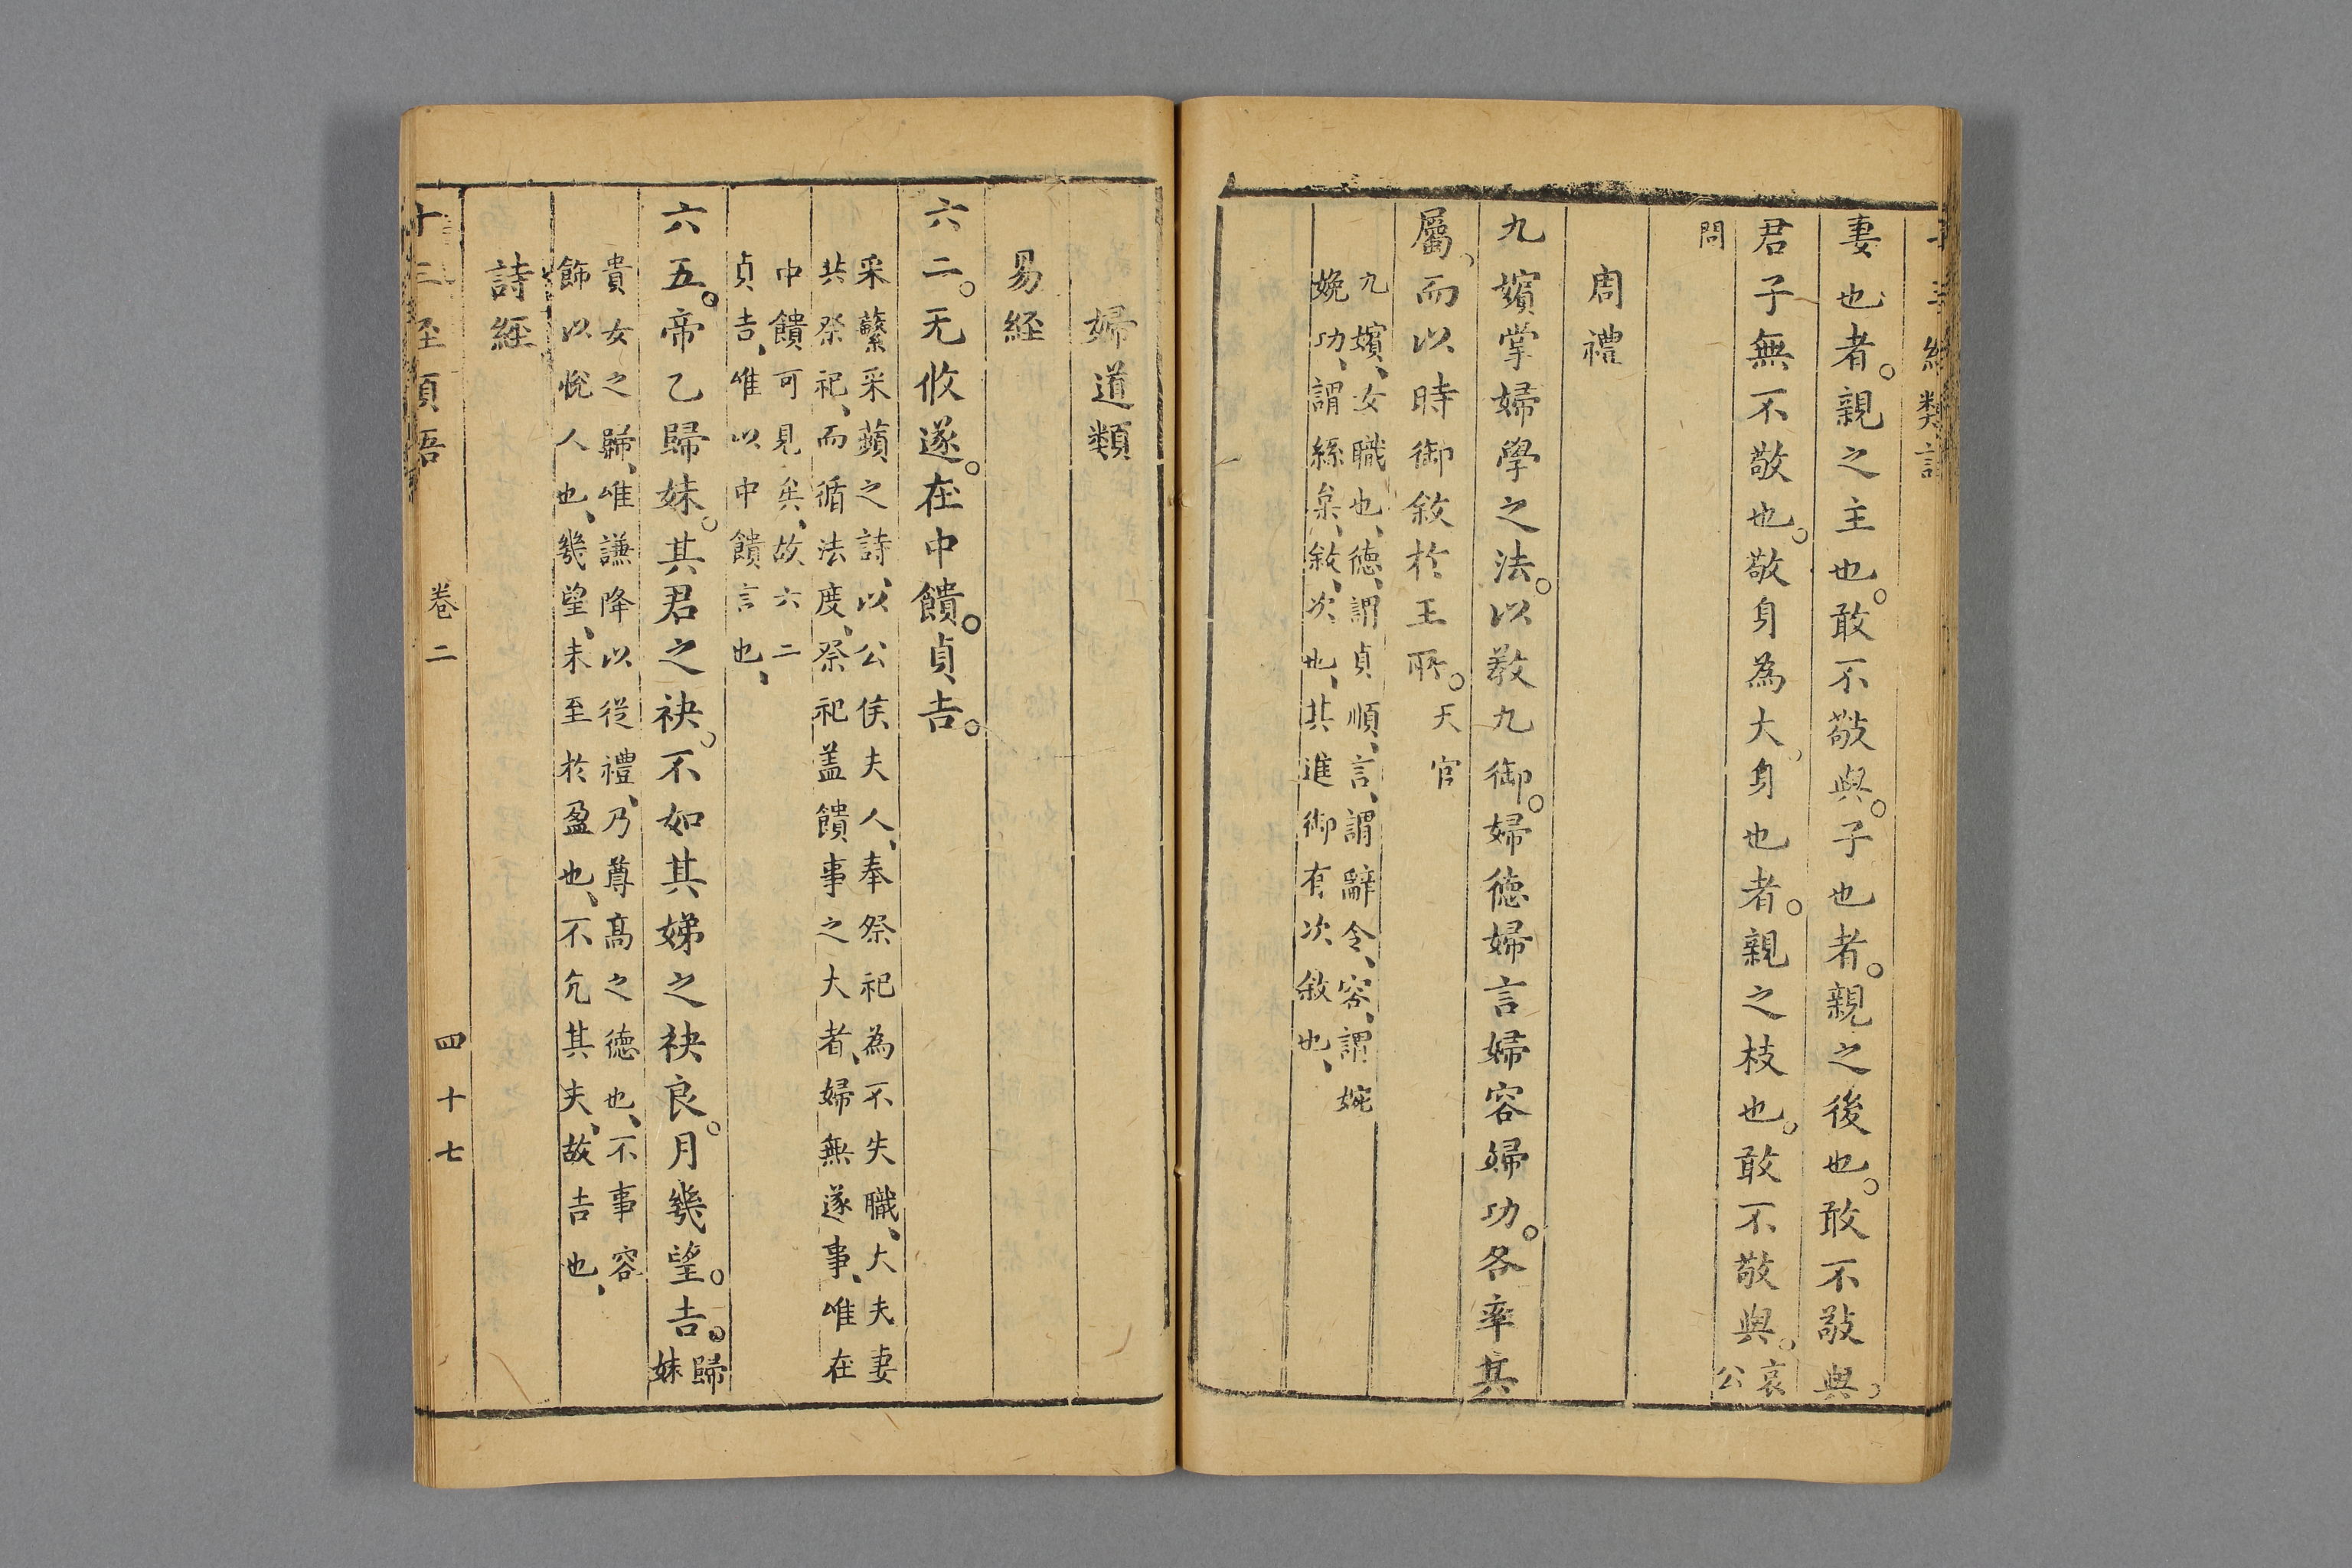 妻也者。親之主也。敢不敬與。子也者。親之後也。敢不敬與。
君子無不敬也。敬身為大。身也者。親之枝也。敢不敬與。哀公
問
周禮
九嬪掌婦學之法。以敎九御。婦德婦言婦容婦功。各率其
屬、而以時御敘於王所。天官
九嬪、女職也、德、謂貞順、言、謂辭令、容、謂婉
娩、功、謂絲枲、敘、次也、其進御有次敘也、
婦道類
易経
六二。无攸遂。在中饋。貞吉。
采蘩采蘋之詩、以公侯夫人、奉祭祀為不失職、大夫妻
共祭祀、而循法度、祭祀盖饋事之大者、婦無遂事、唯在
中饋可見矣、故六二
貞吉、唯以中饋言也、
六五。帝乙歸妹。其君之袂。不如其娣之袂良。月幾望。吉。歸妹
貴女之歸、唯謙降以從禮、乃尊高之德也、不事容
飾以悅人也、幾望、未至於盈也、不亢其夫、故吉也、
詩經
卷二
四十七